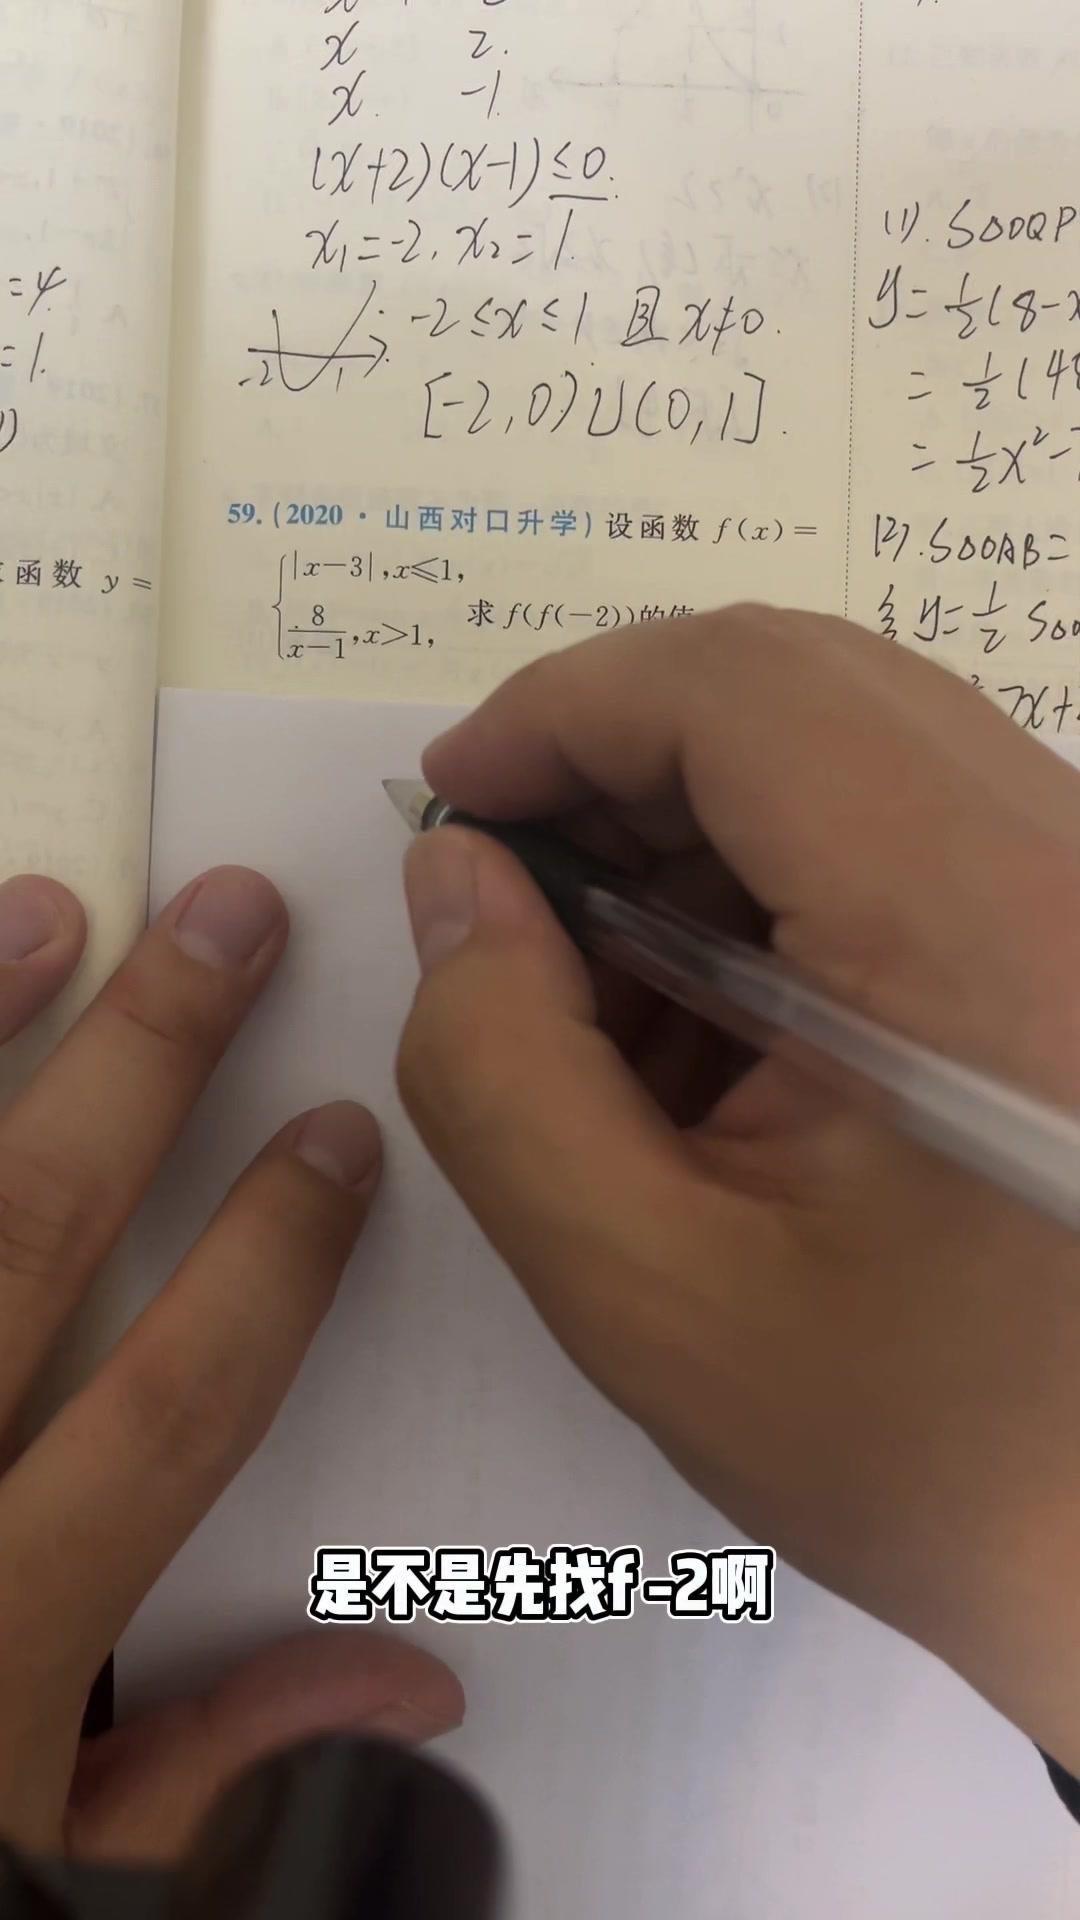 x 2.
x. -1.
(x+2)(x-1)≤0.
x₁=-2, x₂=1.
-2 1
-2≤x≤1 且 x≠0.
[-2,0)∪(0,1].
=4
=1.
函数 y=
59.(2020·山西对口升学)设函数 f(x)=
|x-3|,x≤1,
8/(x-1),x>1,
求 f(f(-2))的值
(1). S△OQP
y=1/2(8-x
=1/2(48
=1/2x²-7
(2). S△OAB=
y=1/2 S△OA
7x+
是不是先找f -2啊